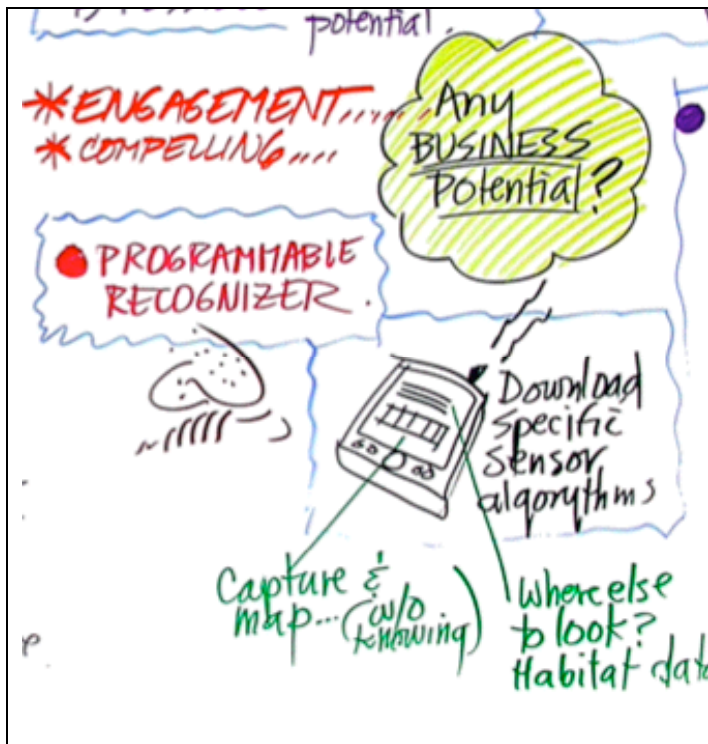 potential.
* ENGAGEMENT......
* COMPELLING....
Any
BUSINESS
Potential?
PROGRAMMABLE
RECOGNIZER.
Download
specific
sensor
algorythms
Capture &
map... (w/o
knowing)
Where else
to look?
Habitat data